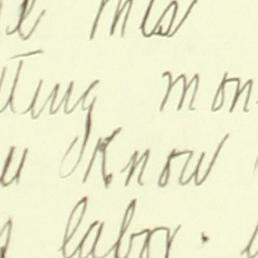 this
tting mon
u know
labor.